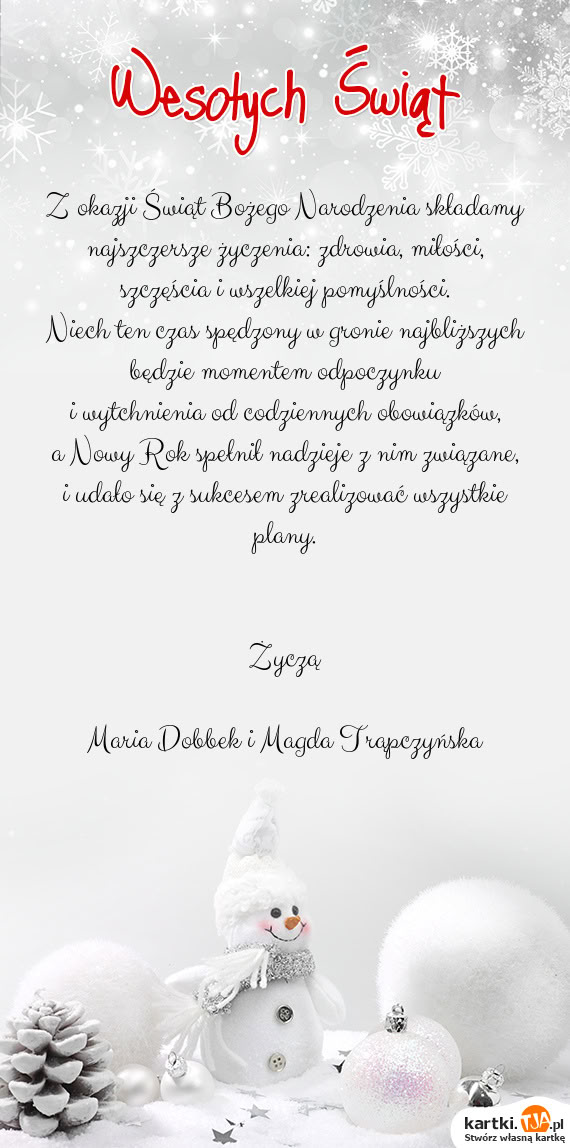 Wesołych Świąt
Z okazji Świąt Bożego Narodzenia składamy
najszczersze życzenia: zdrowia, miłości,
szczęścia i wszelkiej pomyślności.
Niech ten czas spędzony w gronie najbliższych
będzie momentem odpoczynku
i wytchnienia od codziennych obowiązków,
a Nowy Rok spełnił nadzieje z nim związane,
i udało się z sukcesem zrealizować wszystkie
plany.
Życzą
Maria Dobbek i Magda Trapczyńska
kartki.TJA.pl
Stwórz własną kartkę